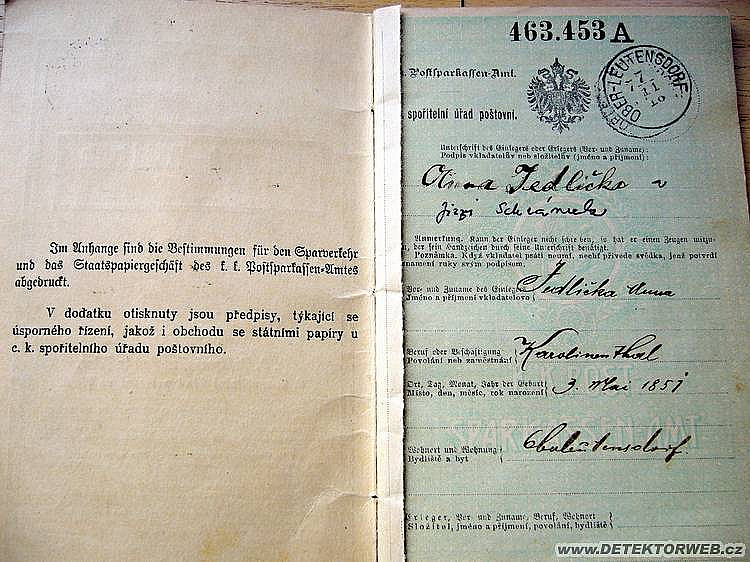 Im Anhange sind die Bestimmungen für den Sparverkehr
und das Staatspapiergeschäft des k. k. Postsparkassen-Amtes
abgedruckt.
V dodatku otisknuty jsou předpisy, týkající se
úsporného řízení, jakož i obchodu se státními papíry u
c. k. spořitelního úřadu poštovního.
463.453 A
Postsparkassen-Amt.
spořitelní úřad poštovní.
OBER-LEUTENSDORF
Unterschrift des Einlegers oder Erlegers (Vor- und Zuname):
Podpis vkladatelův neb složitelův (jméno a příjmení):
Anna Jedlička
Anmerkung. Kann der Einleger nicht schreiben, so hat er einen Zeugen mitzu-
der sein Handzeichen durch seine Unterschrift bestätigt.
Poznámka. Když vkladatel psáti neumí, nechť přivede svědka, jenž potvrdí
znamení ruky svým podpisem.
Vor- und Zuname des Einlegers
Jméno a příjmení vkladatelovo
Jedlička Anna
Beruf oder Beschäftigung
Povolání neb zaměstnání
Karolinenthal
Ort, Tag, Monat, Jahr der Geburt
Místo, den, měsíc, rok narození
9. Mai 1851
Wohnort und Wohnung
Bydliště a byt
Obaleutensdorf
K. K. POST
SPARKASSEN-AMT
Erleger, Vor- und Zuname, Beruf, Wohnort
Složitel, jméno a příjmení, povolání, bydliště
www.DETEKTORWEB.cz